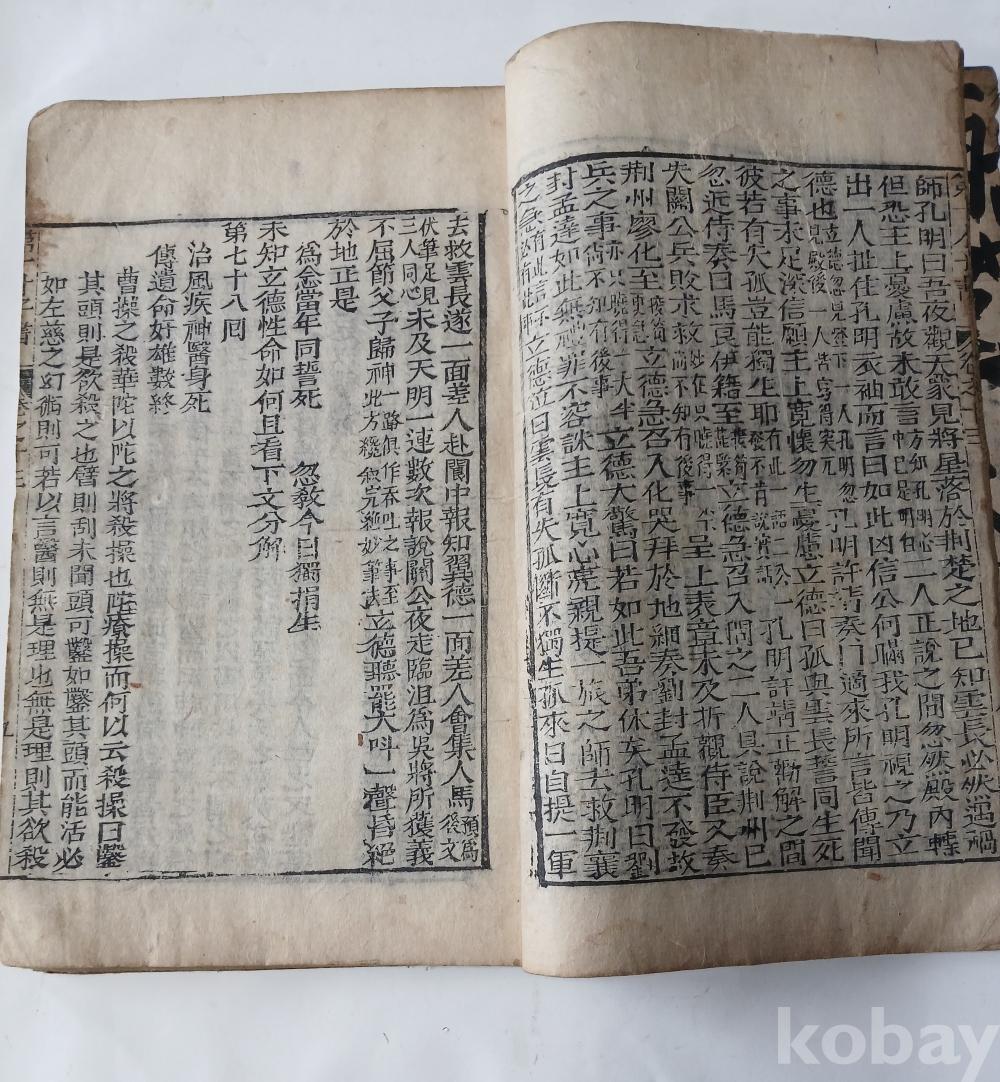 師孔明曰吾夜觀天象見將星落於荊楚之地已知雲長必然遇禍
但恐王上憂慮故未敢言二人正說之間忽然殿內轉
出一人扯住孔明衣袖而言曰如此凶信公何瞞我孔明視之乃立
德也孔明許靖奏曰適來所言皆傳聞
之事未足深信願主上寬懷勿生憂慮立德曰孤與雲長誓同生死
彼若有失孤豈能獨生耶孔明許靖正勸解之間
忽近侍奏曰馬良伊籍至立德急召入問之二人具說荊州已
失關公兵敗求救呈上表章未及折觀侍臣又奏
荊州廖化至立德急召入化哭拜於地細奏劉封孟達不發救
兵之事立德大驚曰若如此吾弟休矣孔明曰劉
封孟達如此無禮罪不容誅主上寬心亮親提一旅之師去救荊襄
之急立德泣曰雲長有失孤斷不獨生孤來日自提一軍
去救雲長遂一面差人赴閬中報知翼德一面差人會集人馬預為後文
伏筆足見三人同心未及天明一連數次報說關公夜走臨沮為吳將所獲義
不屈節父子歸神立德聽罷大叫一聲昏絕
於地正是
為念當年同誓死 忽教今日獨捐生
未知立德性命如何且看下文分解
第七十八回
治風疾神醫身死
傳遺命奸雄數終
曹操之殺華陀以陀之將殺操也陀療操而何以云殺操曰鑿
其頭則是欲殺之也臂則刮未聞頭可鑿如鑿其頭而能活必
如左慈之幻術則可若以言醫則無是理也無是理則其欲殺
kobay